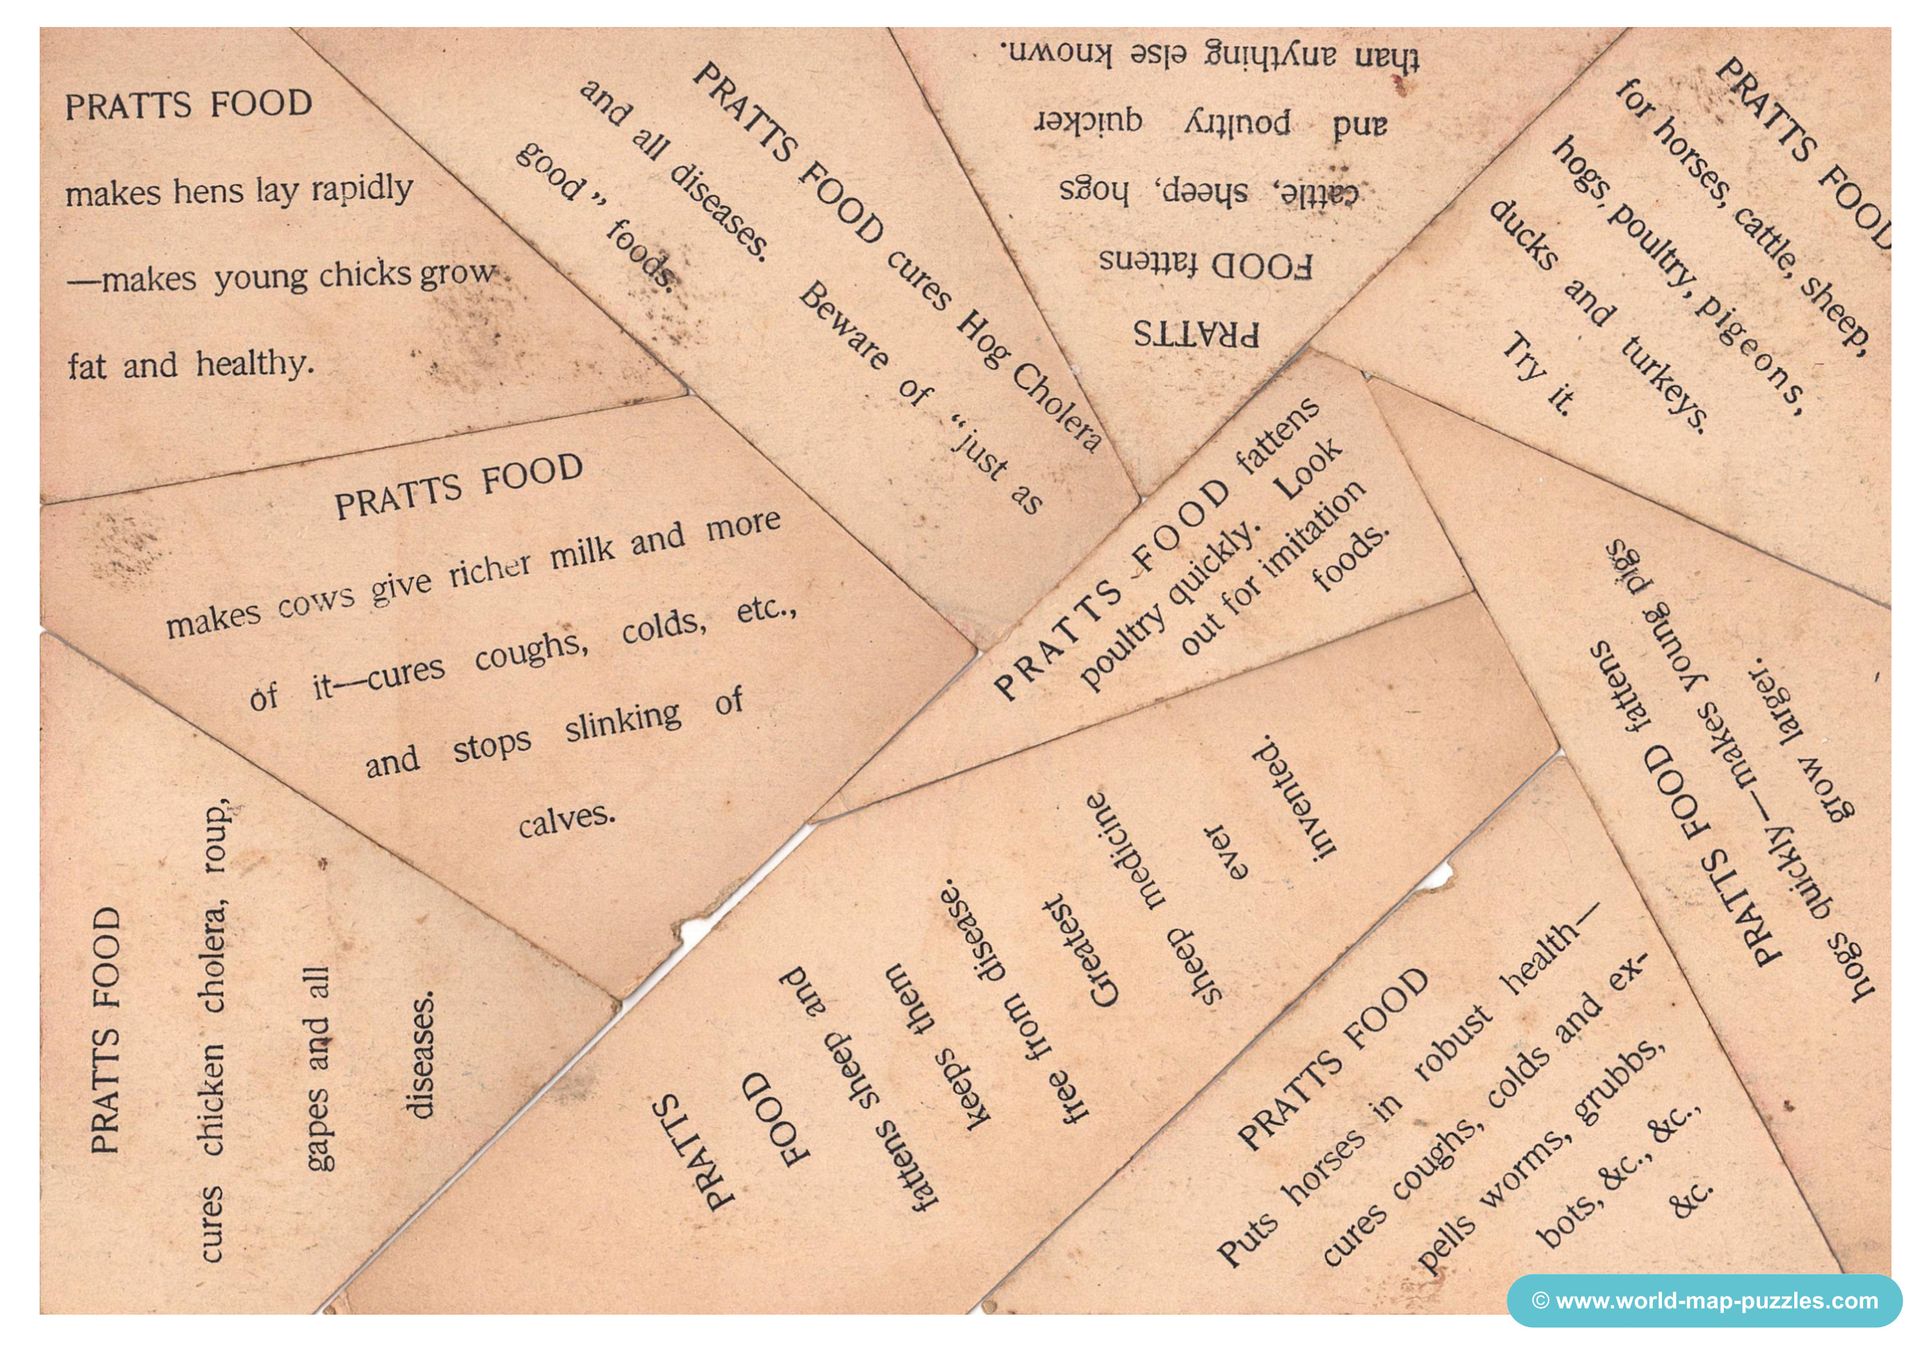 PRATTS FOOD
makes hens lay rapidly
—makes young chicks grow
fat and healthy.
PRATTS FOOD cures Hog Cholera
and all diseases. Beware of “just as
good” foods.
PRATTS
FOOD fattens
cattle, sheep, hogs
and poultry quicker
than anything else known.
PRATTS FOOD
for horses, cattle, sheep,
hogs, poultry, pigeons,
ducks and turkeys.
Try it.
PRATTS FOOD
makes cows give richer milk and more
of it—cures coughs, colds, etc.,
and stops slinking of
calves.
PRATTS FOOD fattens
poultry quickly. Look
out for imitation
foods.
PRATTS FOOD fattens
hogs quickly—makes young pigs
grow larger.
PRATTS FOOD
cures chicken cholera, roup,
gapes and all
diseases.
PRATTS
FOOD
fattens sheep and
keeps them
free from disease.
Greatest
sheep medicine
ever
invented.
PRATTS FOOD
Puts horses in robust health—
cures coughs, colds and ex-
pells worms, grubbs,
bots, &c., &c.,
&c.
© www.world-map-puzzles.com